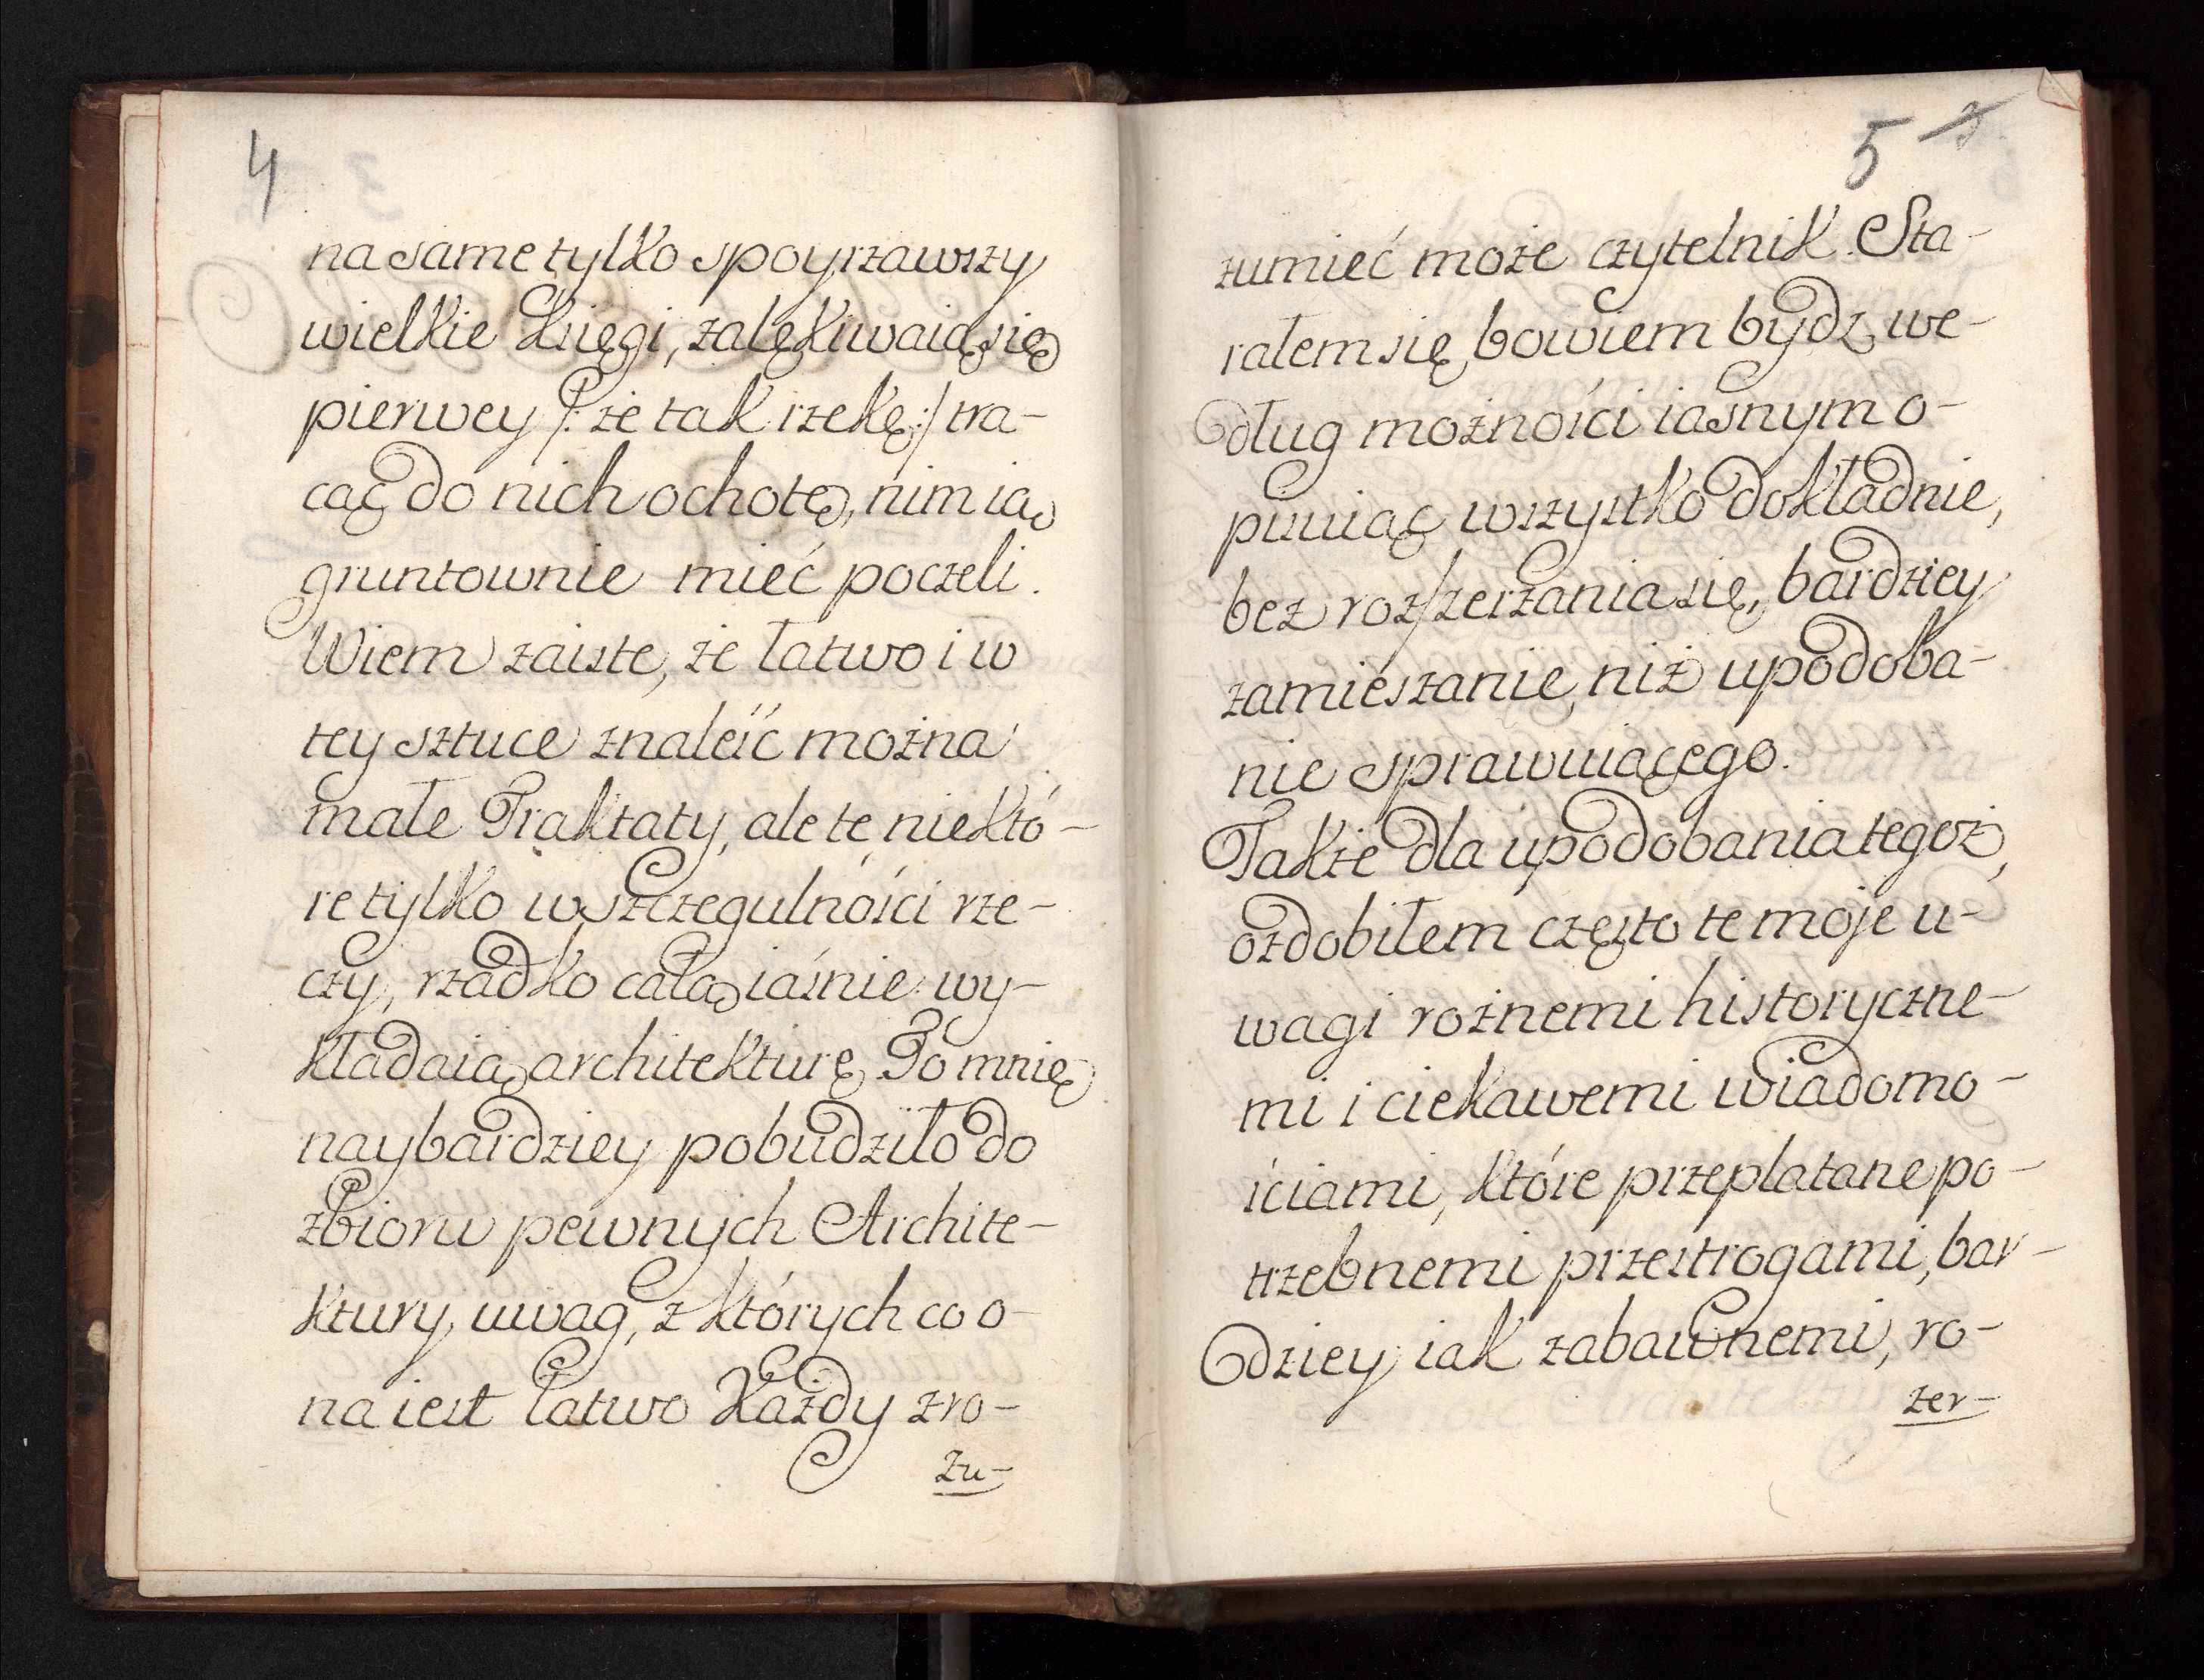 4
na same tylko spoyrzawszy
wielkie Księgi, zalękiwaią się
pierwey /: że tak rzekę :/ tra-
cąc do nich ochotę, nim ią
gruntownie mieć poczeli.
Wiem zaiste, że łatwo i w
tey sztuce znaleść można
małe Traktaty, ale te niektó-
re tylko w szczegulności rze-
czy, rzadko całą iaśnie wy-
kładaią architekturę. To mnię
naybardziey pobudziło do
zbioru pewnych Archite-
ktury uwag, z których co o-
na iest łatwo Każdy zro-
zu-
5
zumieć może czytelnik. Sta-
rałem się bowiem bydz we-
dług możności iasnym o-
pisuiąc wszystko dokładnie,
bez rozszerzania się, bardziey
zamieszanie, niż upodoba-
nie sprawuiącego.
Także dla upodobania tegoż,
ozdobiłem często te moje u-
wagi rożnemi historyczne-
mi i ciekawemi wiadomo-
ściami, które przeplatane po-
trzebnemi przestrogami, bar-
dziey iak zabawnemi, ro-
zer-